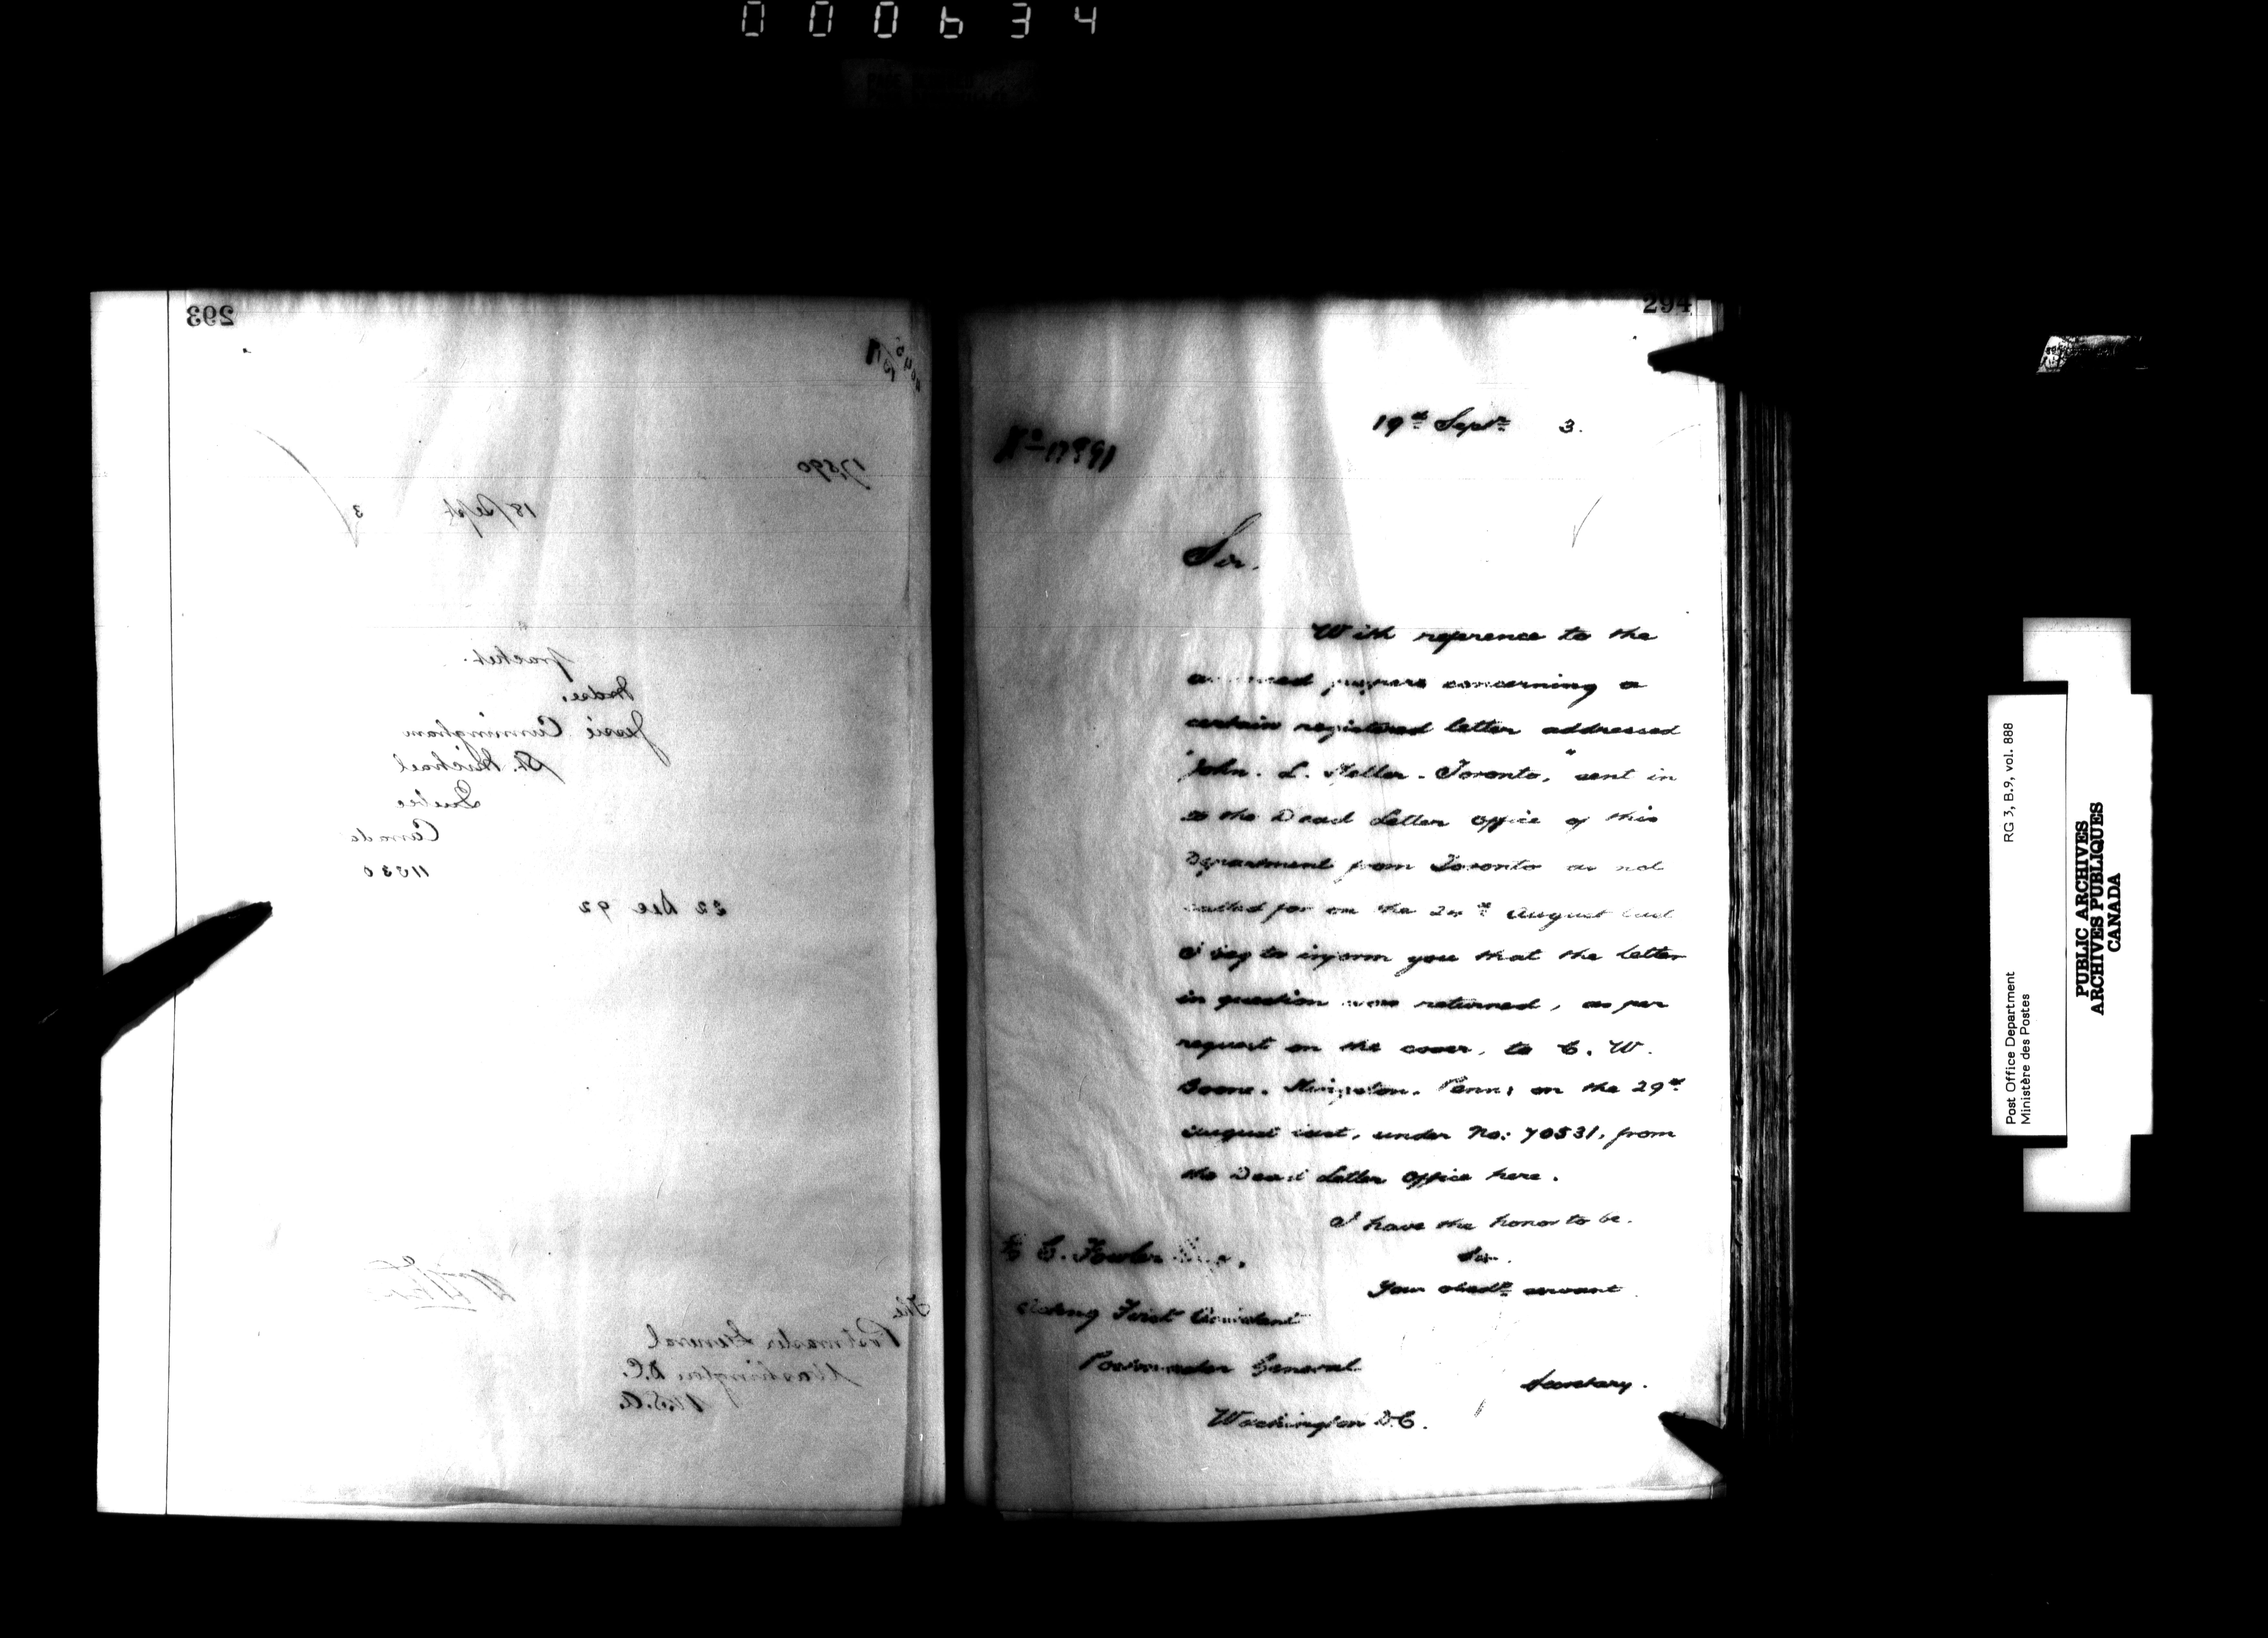 000634
293
17,890
18/Sept 3
packet.
Mdse.
Jessie Cunningham
St. Michael
Quebec
Canada
11330
22 Dec 92
The
Postmaster General
Washington D.C.
U.S.A.
294
19th Septr 3.
No 17891
Sir,
With reference to the
papers concerning a
certain registered letter addressed
"John. L. Keller. Toronto," sent in
to the Dead Letter Office of this
Department from Toronto as not
called for on the August last
I beg to inform you that the letter
in question was returned, as per
request on the cover, to C. W.
Boone. Kingston. Penn: on the 29th
August last, under No: 70531, from
the Dead Letter Office here.
I have the honor to be.
Sir.
Your obedt servant
C. Fowler
Acting First Assistant
Postmaster General
Secretary.
Washington D.C.
Post Office Department RG 3, B.9, vol. 888
Ministère des Postes
PUBLIC ARCHIVES
ARCHIVES PUBLIQUES
CANADA